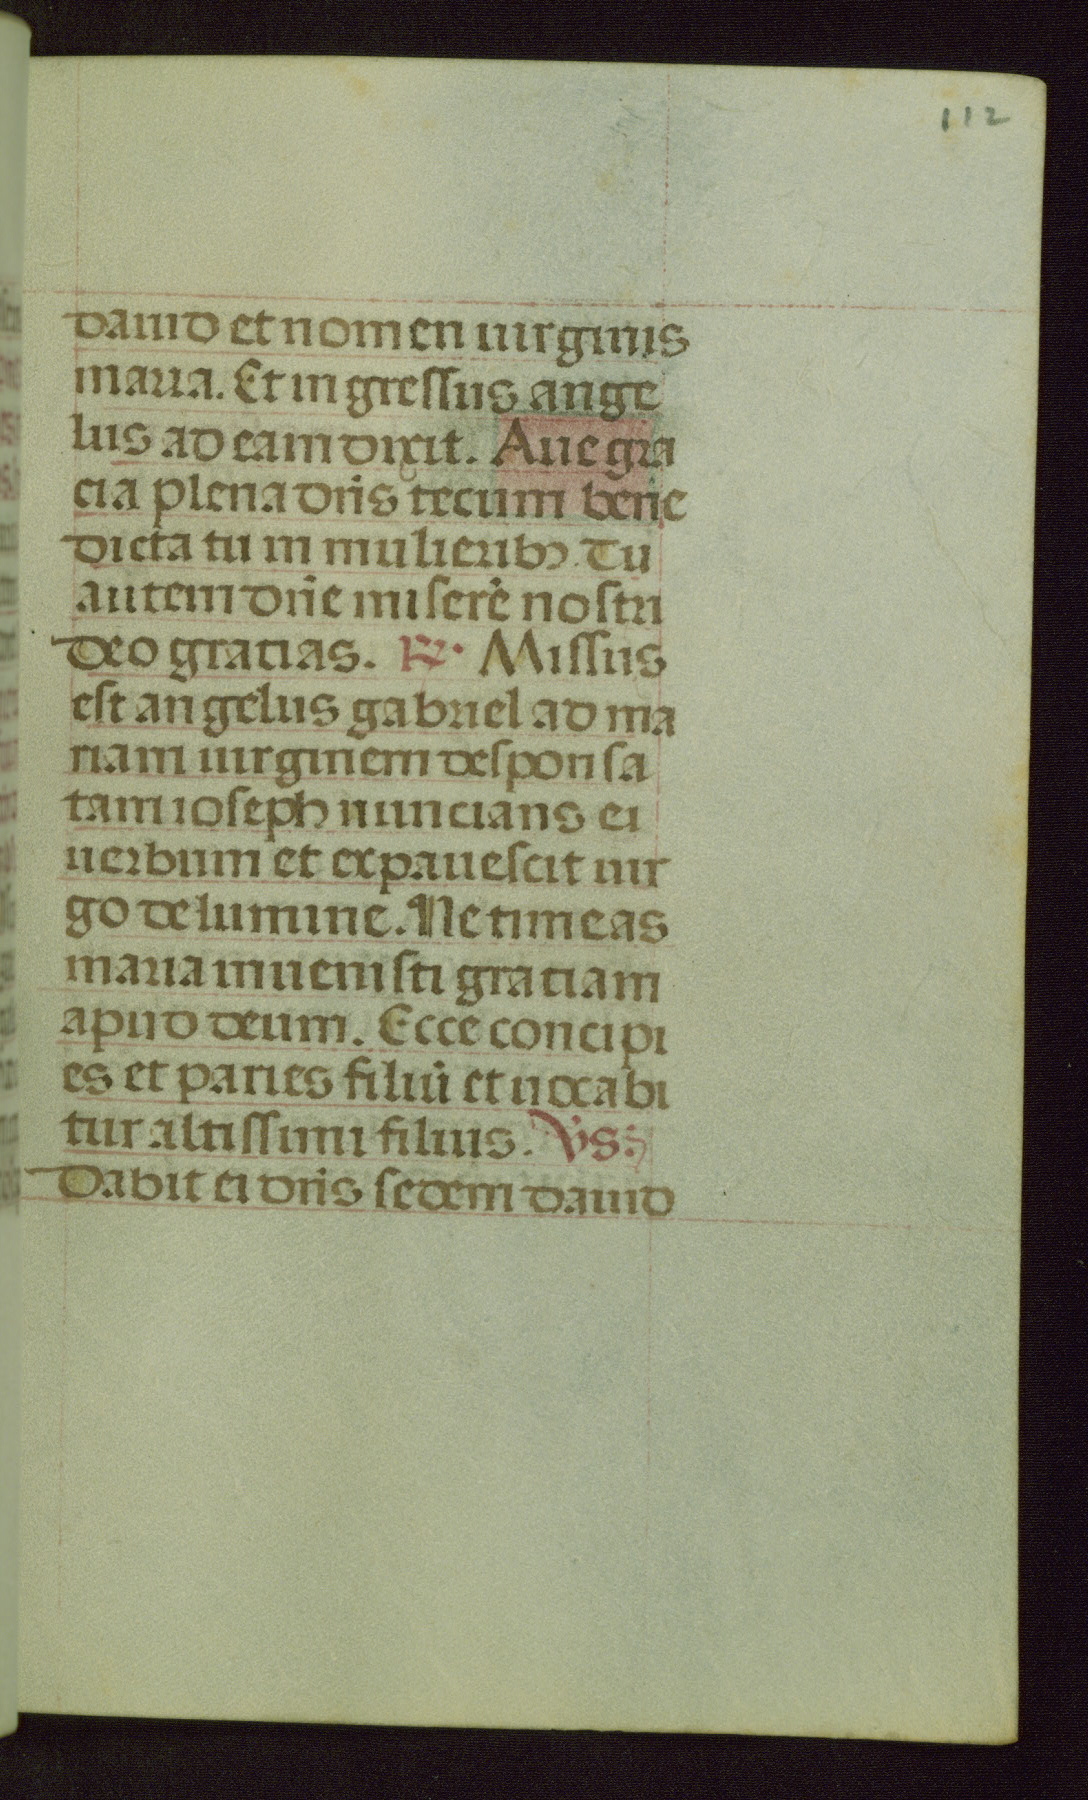 112
dauid et nomen uirginis
maria. Et ingressus ange
lus ad eam dixit. Aue gra
cia plena dn̄s tecum bene
dicta tu in mulieribꝫ. Tu
autem dn̄e miserē nostri
deo gracias. ℟. Missus
est angelus gabriel ad ma
riam uirginem desponsa
tam ioseph nuncians ei
uerbum et expauescit uir
go de lumine. Ne timeas
maria inuenisti graciam
apud deum. Ecce concipi
es et paries filiū et uocabi
tur altissimi filius. V̄s:
Dabit ei dn̄s sedem dauid